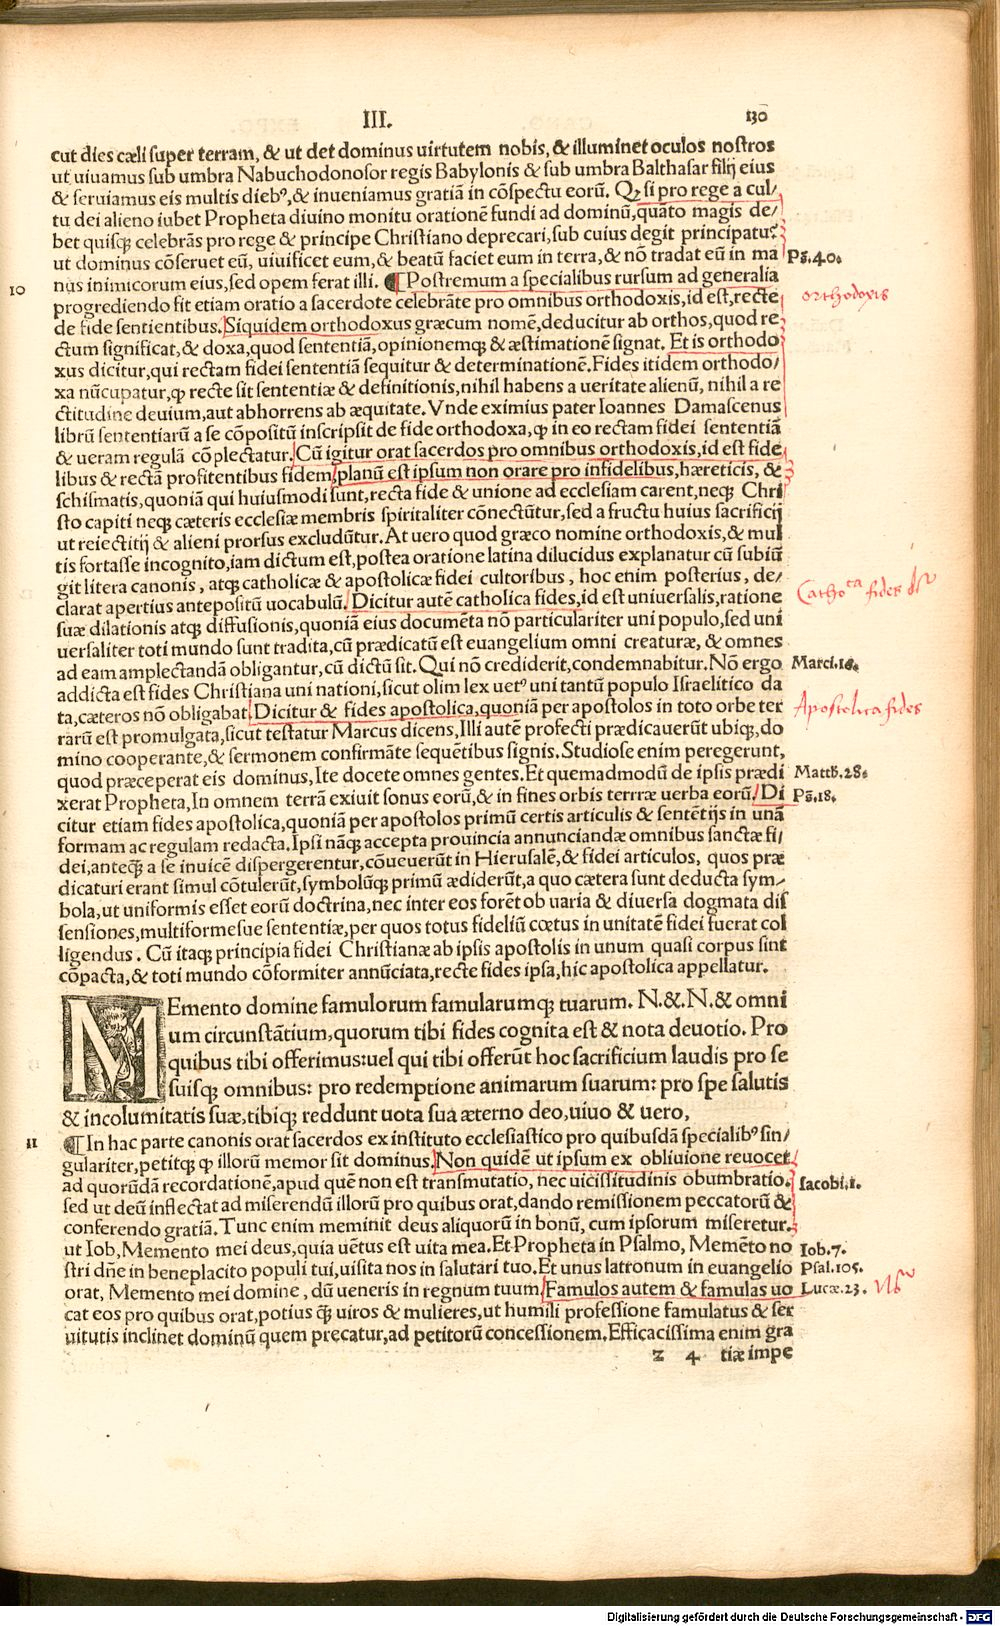 III. 130
cut dies cæli super terram, & ut det dominus uirtutem nobis, & illuminet oculos nostros
ut uiuamus sub umbra Nabuchodonosor regis Babylonis & sub umbra Balthasar filij eius
& seruiamus eis multis diebꝰ, & inueniamus gratiā in cōspectu eorū. Qꝫ si pro rege a cul-
tu dei alieno iubet Propheta diuino monitu orationē fundi ad dominū, quāto magis de/
bet quisqꝫ celebrās pro rege & principe Christiano deprecari, sub cuius degit principatu?
ut dominus cōseruet eū, uiuificet eum, & beatū faciet eum in terra, & nō tradat eū in ma Ps̄.40.
10 nus inimicorum eius, sed opem ferat illi. ¶Postremum a specialibus rursum ad generalia
orthodoxis
progrediendo fit etiam oratio a sacerdote celebrāte pro omnibus orthodoxis, id est, recte
de fide sentientibus. Siquidem orthodoxus græcum nomē, deducitur ab orthos, quod re
ctum significat, & doxa, quod sententiā, opinionemqꝫ & æstimationē signat. Et is orthodo
xus dicitur, qui rectam fidei sententiā sequitur & determinationē. Fides itidem orthodo/
xa nūcupatur, ꝙ recte sit sententiæ & definitionis, nihil habens a ueritate alienū, nihil a re
ctitudine deuium, aut abhorrens ab æquitate. Vnde eximius pater Ioannes Damascenus
librū sententiarū a se cōpositū inscripsit de fide orthodoxa, ꝙ in eo rectam fidei sententiā
& ueram regulā cōplectatur. Cū igitur orat sacerdos pro omnibus orthodoxis, id est fide
libus & rectā profitentibus fidem, planū est ipsum non orare pro infidelibus, hæreticis, &
schismatis, quoniā qui huiusmodi sunt, recta fide & unione ad ecclesiam carent, neqꝫ Chri
sto capiti neqꝫ cæteris ecclesiæ membris spiritaliter cōnectūtur, sed a fructu huius sacrificij
ut reiectitij & alieni prorsus excludūtur. At uero quod græco nomine orthodoxis, & mul
tis fortasse incognito, iam dictum est, postea oratione latina dilucidus explanatur cū subiū
git litera canonis, atqꝫ catholicæ & apostolicæ fidei cultoribus, hoc enim posterius, de/
clarat apertius antepositū uocabulū. Dicitur autē catholica fides, id est uniuersalis, ratione
Catholica fides dr
suæ dilationis atqꝫ diffusionis, quoniā eius documēta nō particulariter uni populo, sed uni
uersaliter toti mundo sunt tradita, cū prædicatū est euangelium omni creaturæ, & omnes
ad eam amplectandā obligantur, cū dictū sit. Qui nō crediderit, condemnabitur. Nō ergo Marci.16.
addicta est fides Christiana uni nationi, sicut olim lex uetꝰ uni tantū populo Israelitico da
ta, cæteros nō obligabat. Dicitur & fides apostolica, quoniā per apostolos in toto orbe ter
Apostolica fides
rarū est promulgata, sicut testatur Marcus dicens, Illi autē profecti prædicauerūt ubiqꝫ, do
mino cooperante, & sermonem confirmāte sequētibus signis. Studiose enim peregerunt,
quod præceperat eis dominus, Ite docete omnes gentes. Et quemadmodū de ipsis prædi Matth.28.
xerat Propheta, In omnem terrā exiuit sonus eorū, & in fines orbis terrræ uerba eorū. Di Ps̄.18.
citur etiam fides apostolica, quoniā per apostolos primū certis articulis & sentētijs in unā
formam ac regulam redacta. Ipsi nāqꝫ accepta prouincia annunciandæ omnibus sanctæ fi/
dei, anteqꝫ̄ a se inuicē dispergerentur, cōueuerūt in Hierusalē, & fidei articulos, quos præ
dicaturi erant simul cōtulerūt, symbolūqꝫ primū ædiderūt, a quo cætera sunt deducta sym-
bola, ut uniformis esset eorū doctrina, nec inter eos forēt ob uaria & diuersa dogmata dis
sensiones, multiformesue sententiæ, per quos totus fideliū cœtus in unitatē fidei fuerat col
ligendus. Cū itaqꝫ principia fidei Christianæ ab ipsis apostolis in unum quasi corpus sint
cōpacta, & toti mundo cōformiter annūciata, recte fides ipsa, hic apostolica appellatur.
MEmento domine famulorum famularumqꝫ tuarum. N.&.N.& omni
um circunstātium, quorum tibi fides cognita est & nota deuotio. Pro
quibus tibi offerimus: uel qui tibi offerūt hoc sacrificium laudis pro se
suisqꝫ omnibus: pro redemptione animarum suarum: pro spe salutis
& incolumitatis suæ, tibiqꝫ reddunt uota sua æterno deo, uiuo & uero,
11 ¶In hac parte canonis orat sacerdos ex instituto ecclesiastico pro quibusdā specialibꝰ sin/
gulariter, petitqꝫ ꝙ illorū memor sit dominus. Non quidē ut ipsum ex obliuione reuocet
ad quorūdā recordationē, apud quē non est transmutatio, nec uicissitudinis obumbratio. Iacobi.1.
sed ut deū inflectat ad miserendū illorū pro quibus orat, dando remissionem peccatorū &
conferendo gratiā. Tunc enim meminit deus aliquorū in bonū, cum ipsorum miseretur.
ut Iob, Memento mei deus, quia uētus est uita mea. Et Propheta in Psalmo, Memēto no Iob.7.
stri dn̄e in beneplacito populi tui, uisita nos in salutari tuo. Et unus latronum in euangelio Psal.105.
orat, Memento mei domine, dū ueneris in regnum tuum. Famulos autem & famulas uo Lucæ.23.
cat eos pro quibus orat, potius qꝫ̄ uiros & mulieres, ut humili professione famulatus & ser
uitutis inclinet dominū quem precatur, ad petitorū concessionem. Efficacissima enim gra
z 4 tiæ impe
Digitalisierung gefördert durch die Deutsche Forschungsgemeinschaft - DFG